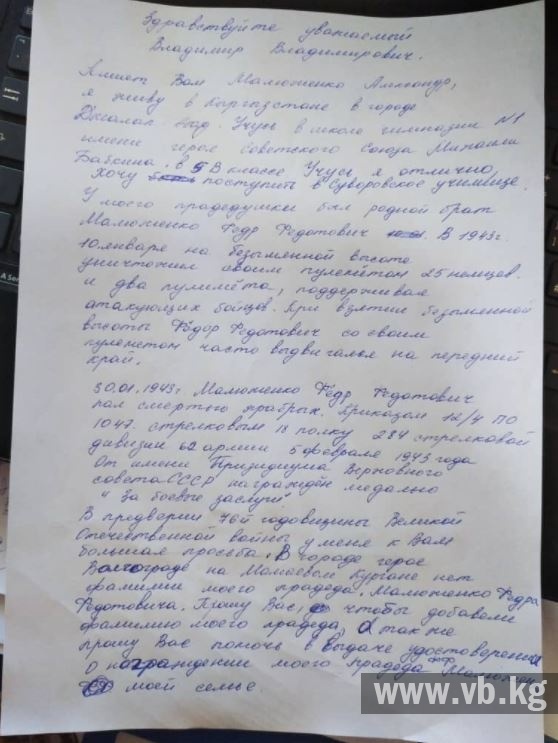 Здравствуйте уважаемый
Владимир Владимирович.
Пишет Вам Малюженко Александр,
я живу в Кыргызстане в городе
Джалал-Абад. Учусь в школе гимназии N1
имени героя советского Союза Михаила
Бабкина. в 5 В классе Учусь я отлично
Хочу поступить в Суворовское училище.
У моего прадедушки был родной брат
Малюженко Федр Федотович. В 1943г
10 января на безымянной высоте
уничтожил своим пулемётом 25 немцов.
и два пулимёта, поддерживая
атакующих бойцов. При взятии безымянной
высоты Фёдор Федотович со своим
пулемётом часто выдвигалья на передний
край.
30.01.1943г Малюженко Фёдр Федотович
пал смертью храбрых. Приказом 12/4 ПО
1047 стрелковым 18 полку 284 стрелковой
дивизии 62 армии 5 февраля 1943 года
От имени Призидиума Верховного
совета СССР награждён медалью
"За боевые заслуги"
В предверии 76й годовщины Великой
Отечественной войны у меня к Вам
большая просьба. В городе герое
Волгограде на Мамаевом Кургане нет
фамилии моего прадеда. Малюженко Федра
Федотовича. Прошу Вас, чтобы добавели
фамилию моего прадеда, а так же
прошу Вас помочь в выдаче удостоверения
о награждении моего прадеда
моей семье.
www.vb.kg